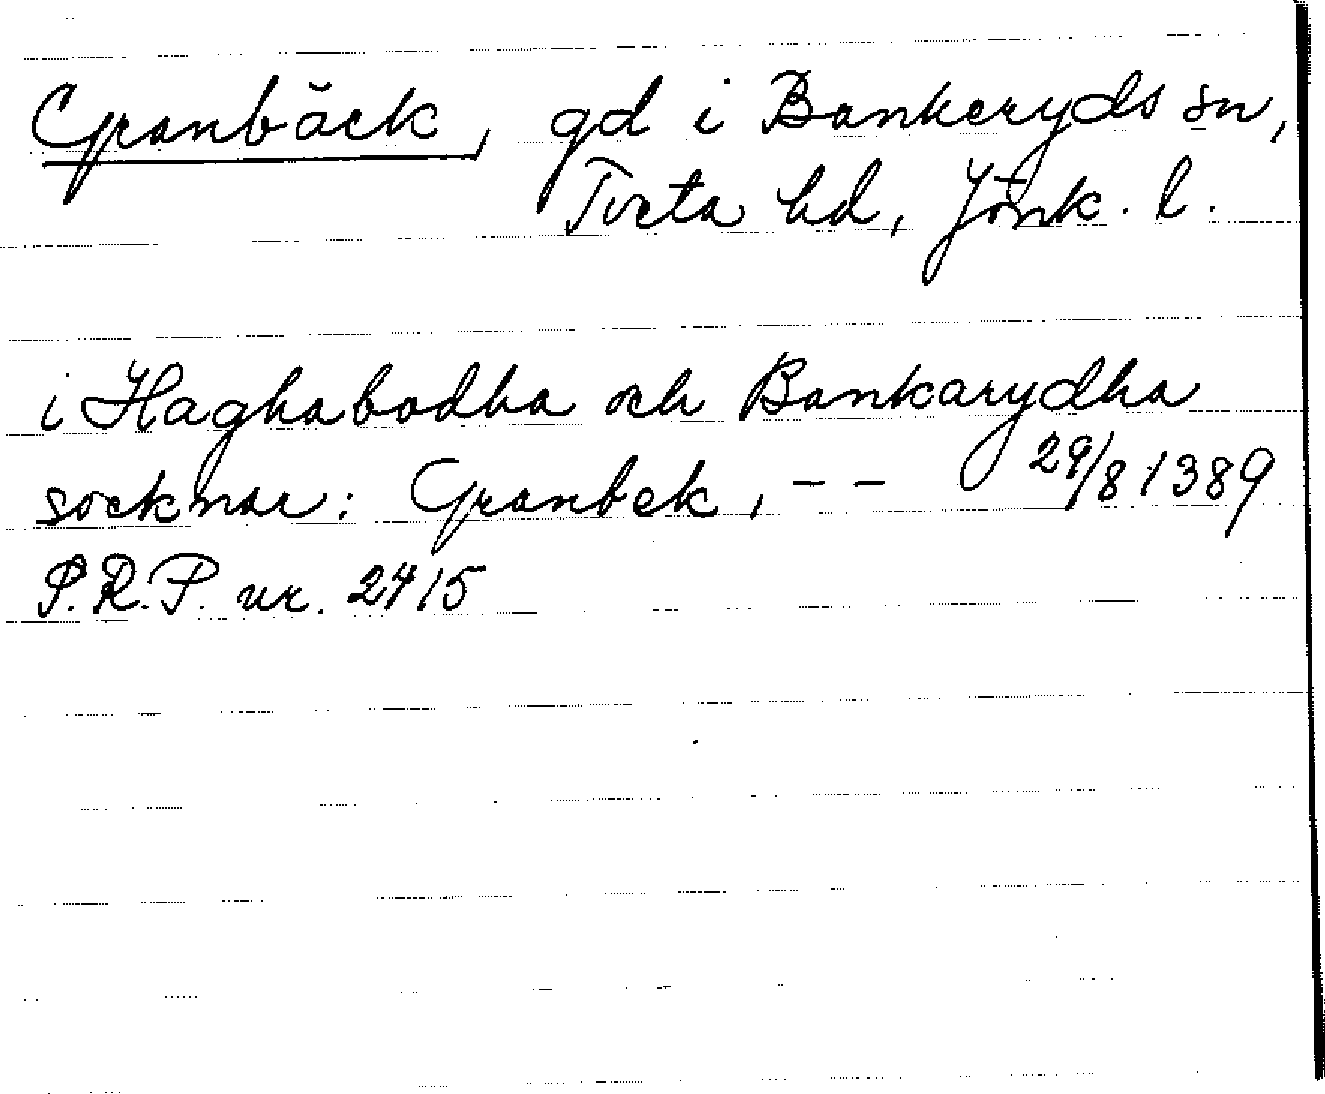 Granbäck, gd i Bankeryds sn,
Tveta hd, Jönk. l.
i Haghabodha och Bankarydha
socknar: Granbek, -- 29/8 1389
S.R.P. nr. 2415